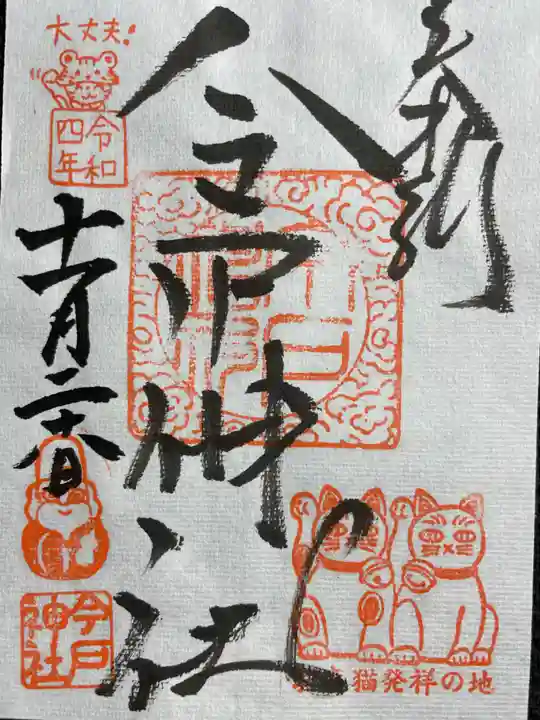 奉拝
今戸神社
大丈夫!
令和
四年
十一月
日
今戸
神社
猫発祥の地